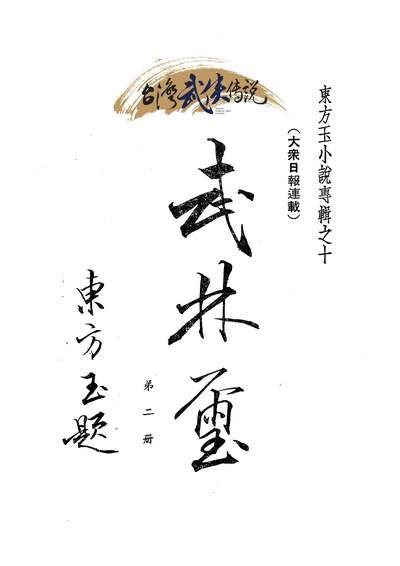 台灣武侠传说
東方玉小說專輯之十
（大眾日報連載）
武林璽
第二册
東方玉題